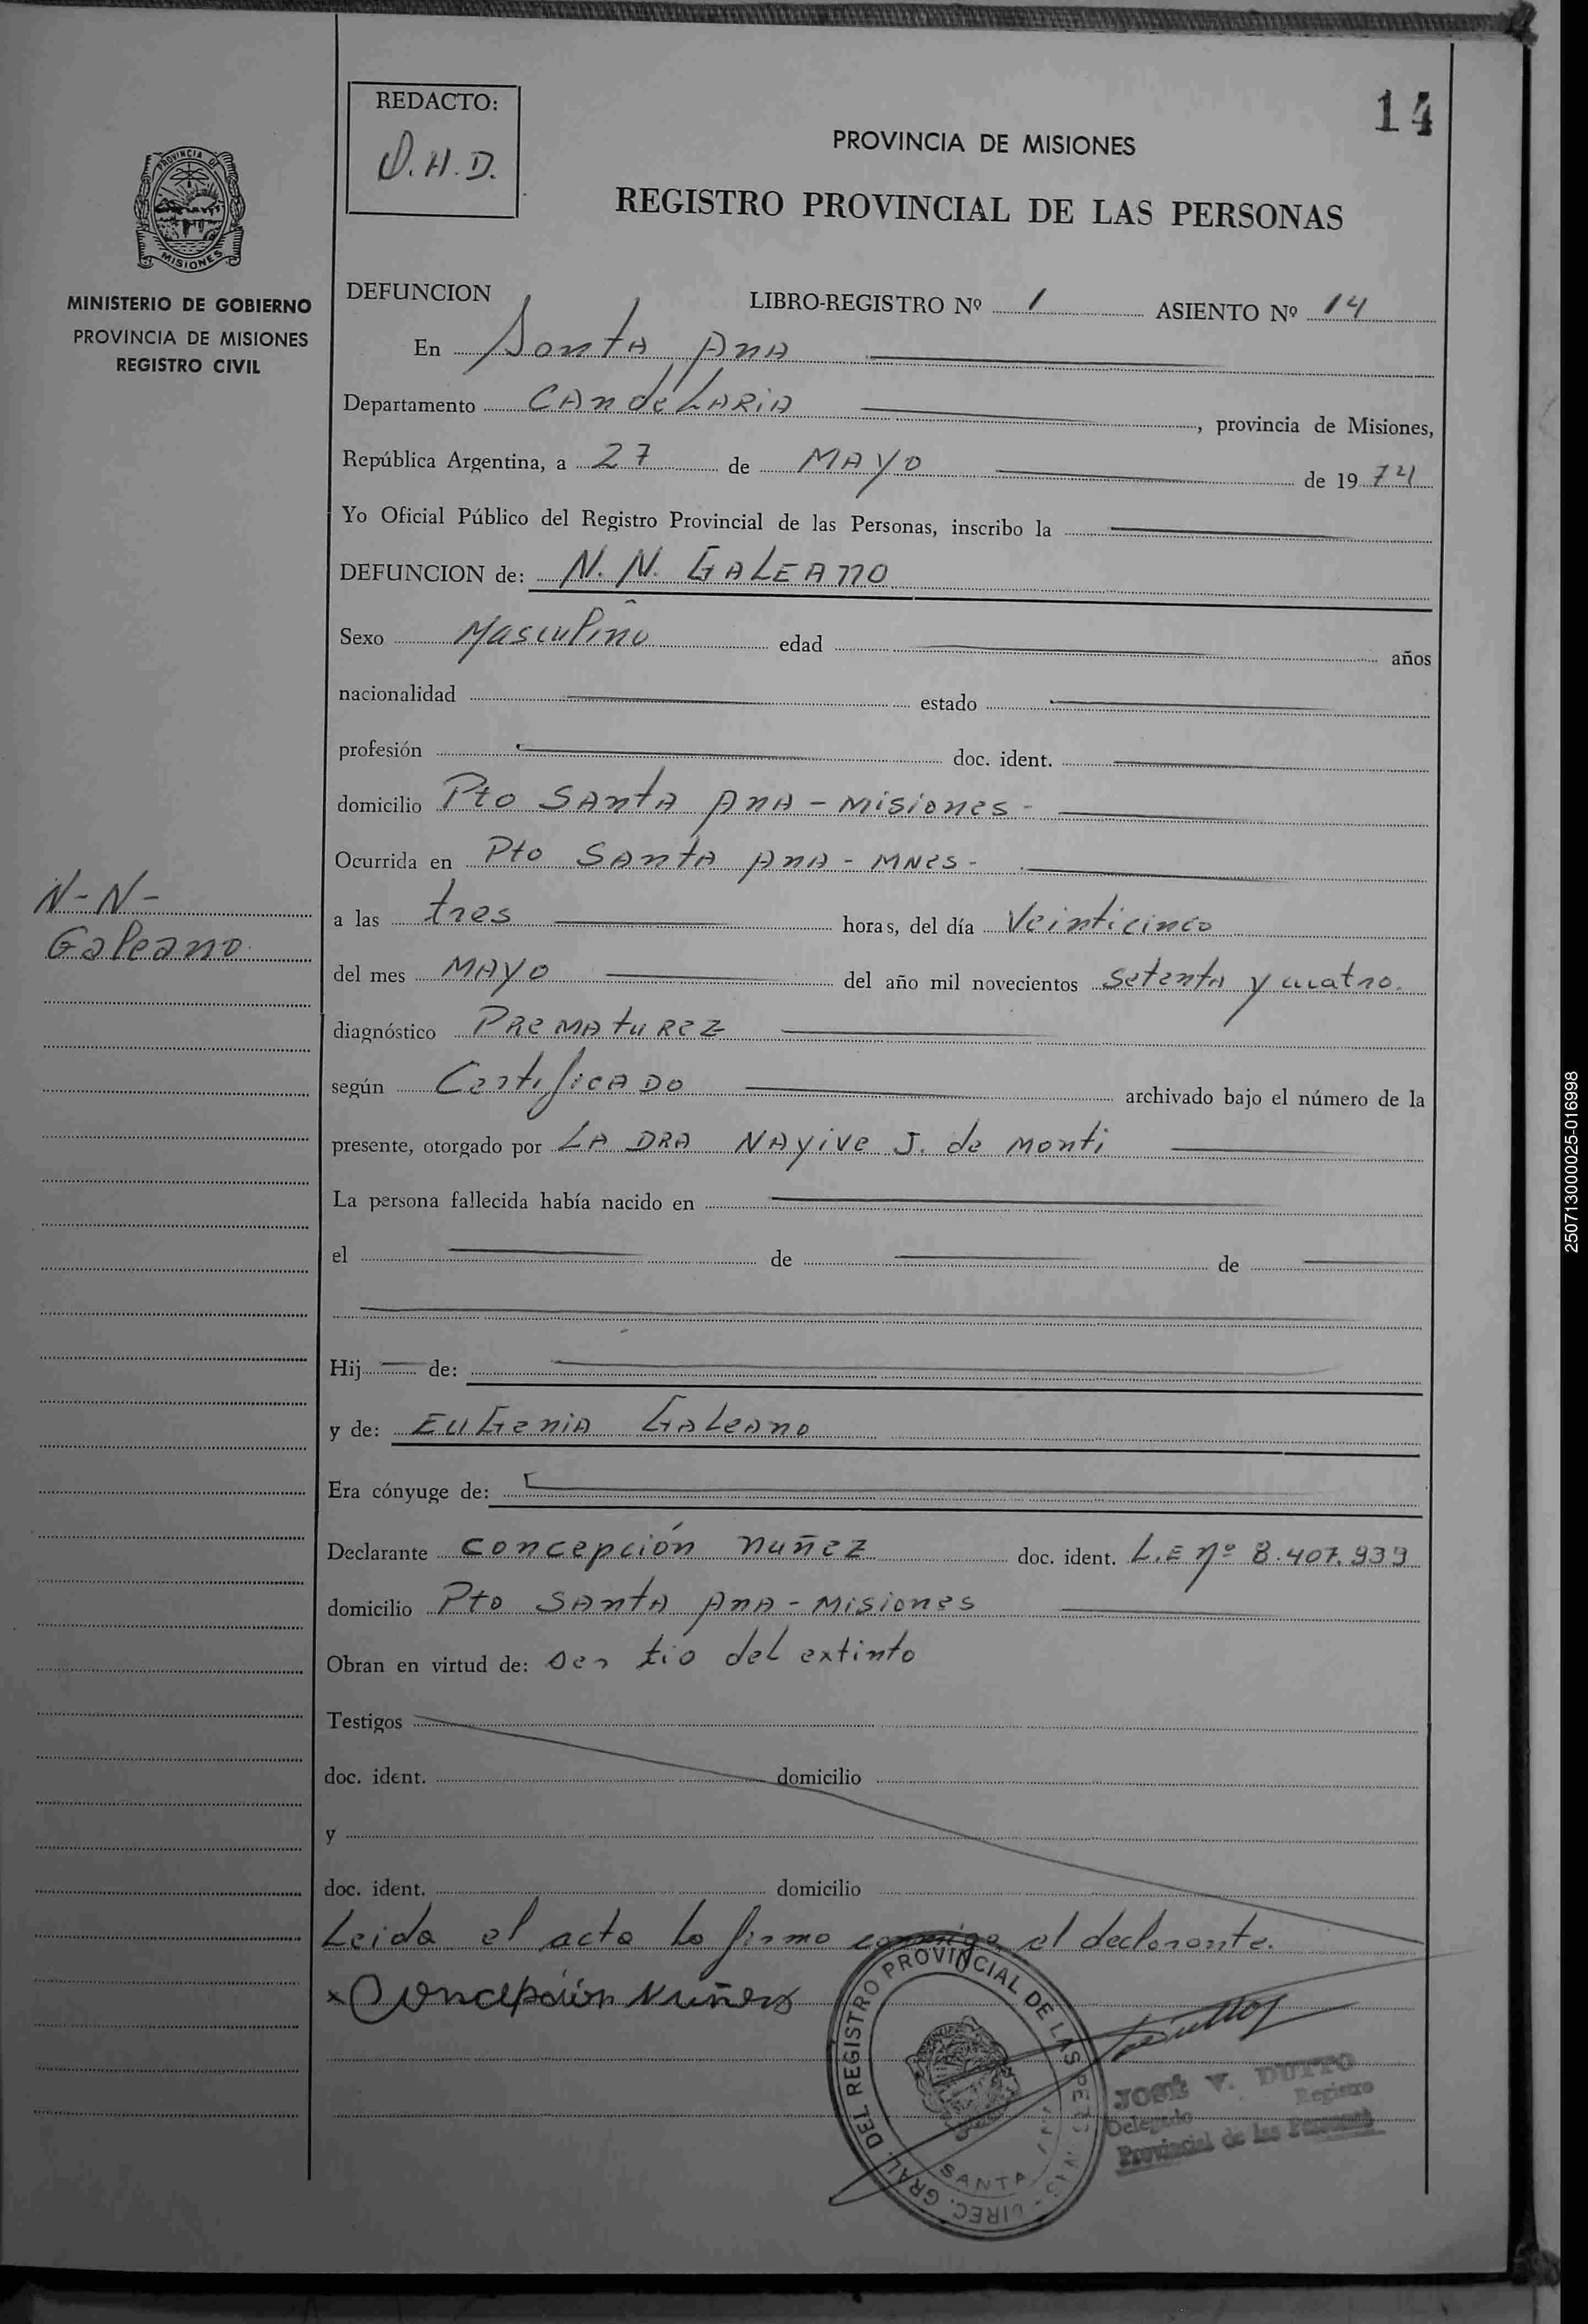 14
REDACTO:
O.H.D.
PROVINCIA DE MISIONES
REGISTRO PROVINCIAL DE LAS PERSONAS
PROVINCIA DE
MISIONES
MINISTERIO DE GOBIERNO
PROVINCIA DE MISIONES
REGISTRO CIVIL
DEFUNCION LIBRO-REGISTRO Nº 1 ASIENTO Nº 14
En Santa Ana
Departamento Candelaria, provincia de Misiones,
República Argentina, a 27 de Mayo de 1974
Yo Oficial Público del Registro Provincial de las Personas, inscribo la
DEFUNCION de: N. N. GALEANO
Sexo Masculino edad años
nacionalidad estado
profesión doc. ident.
domicilio Pto Santa Ana - Misiones -
Ocurrida en Pto Santa Ana - Mnes -
N-N-
Galeano
a las tres horas, del día Veinticinco
del mes Mayo del año mil novecientos setenta y cuatro.
diagnóstico Prematurez
según Certificado archivado bajo el número de la
presente, otorgado por La Dra Nayive J. de Monti
La persona fallecida había nacido en
el de de
Hij de:
y de: Eugenia Galeano
Era cónyuge de:
Declarante Concepción Nuñez doc. ident. L.E nº 8.407.939
domicilio Pto Santa Ana - Misiones
Obran en virtud de: ser tio del extinto
Testigos
doc. ident. domicilio
y
doc. ident. domicilio
Leida el acta la firma conmigo el declarante.
x Concepción Nuñez
DIREC. GRAL. DEL REGISTRO PROVINCIAL DE LAS PERSONAS
SANTA
JOSÉ V. DUTTO
Delegado Registro
Provincial de las Personas
250713000025-016998